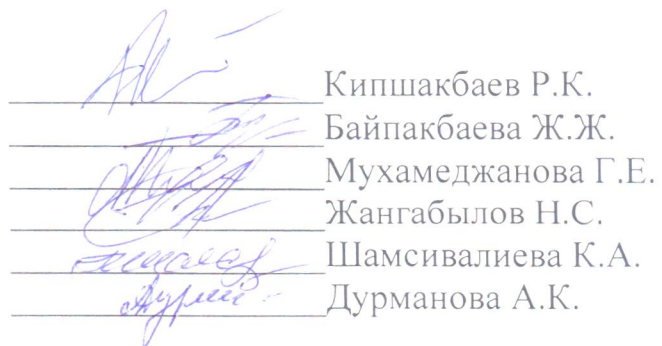 Кипшакбаев Р.К.
Байпакбаева Ж.Ж.
Мухамеджанова Г.Е.
Жангабылов Н.С.
Шамсивалиева К.А.
Дурманова А.К.